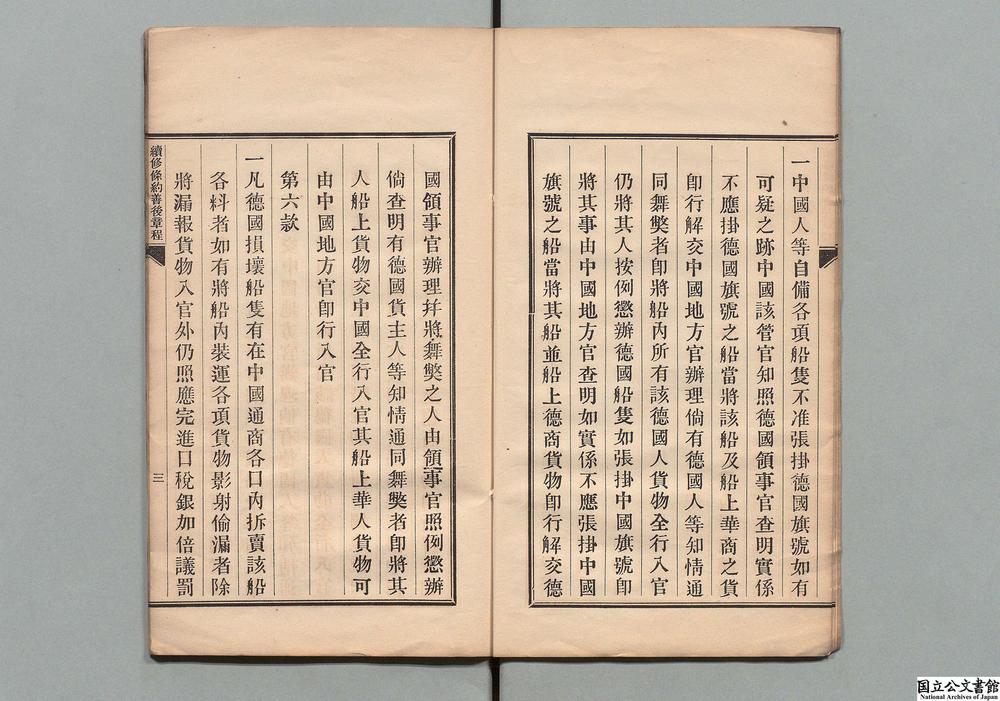 一中國人等自備各項船隻不准張掛德國旗號如有
可疑之跡中國該管官知照德國領事官查明實係
不應掛德國旗號之船當將該船及船上華商之貨
卽行解交中國地方官辦理倘有德國人等知情通
同舞獘者卽將船內所有該德國人貨物全行入官
仍將其人按例懲辦德國船隻如張掛中國旗號卽
將其事由中國地方官查明如實係不應張掛中國
旗號之船當將其船並船上德商貨物卽行解交德
國領事官辦理幷將舞獘之人由領事官照例懲辦
倘查明有德國貨主人等知情通同舞獘者卽將其
人船上貨物交中國全行入官其船上華人貨物可
由中國地方官卽行入官
第六款
一凡德國損壞船隻有在中國通商各口內拆賣該船
各料者如有將船內裝運各項貨物影射偷漏者除
將漏報貨物入官外仍照應完進口稅銀加倍議罰
續修條約善後章程
三
国立公文書館
National Archives of Japan